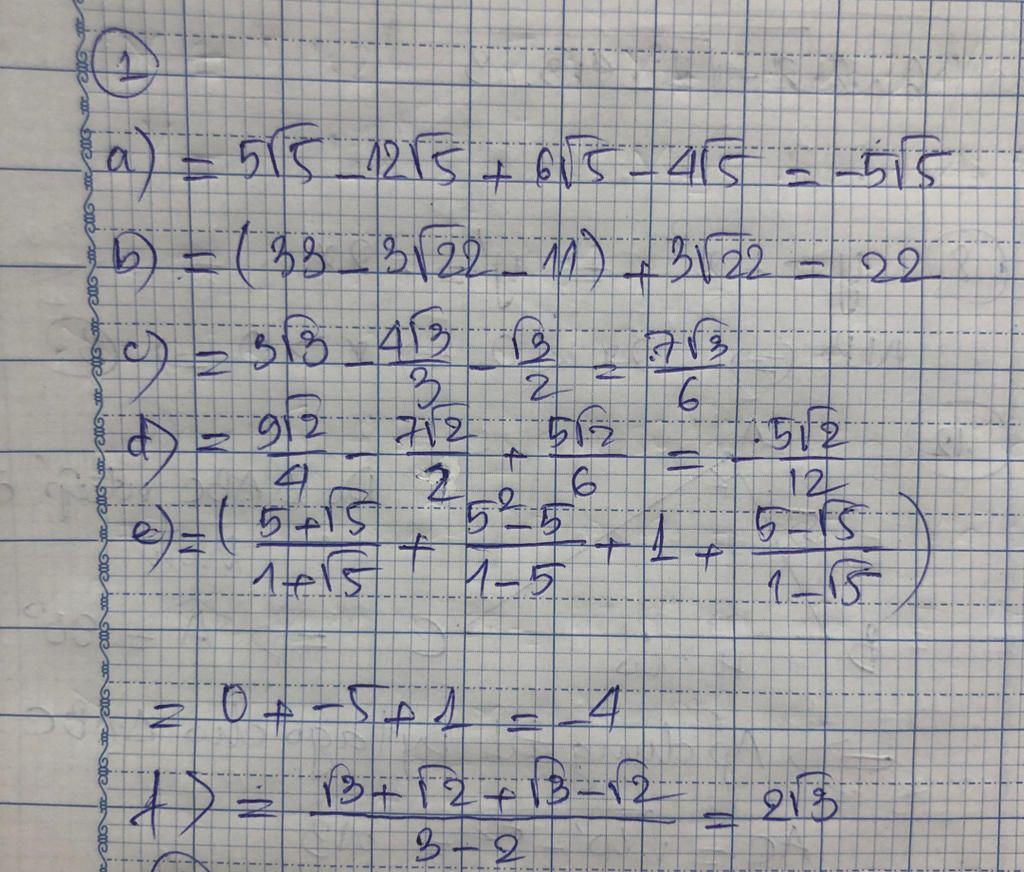 1
a) = 5√5 - 12√5 + 6√5 - 4√5 = -5√5
b) = (33 - 3√22 - 11) + 3√22 = 22
c) = 3√3 - 4√3/3 - √3/2 = 7√3/6
d) = 9√2/4 - 7√2/2 + 5√2/6 = - 5√2/12
e) = ( (5+√5)/(1+√5) + (5²-5)/(1-5) + 1 + (5-√5)/(1-√5) )
= 0 + -5 + 1 = -4
f) = (√3+√2+√3-√2)/(3-2) = 2√3